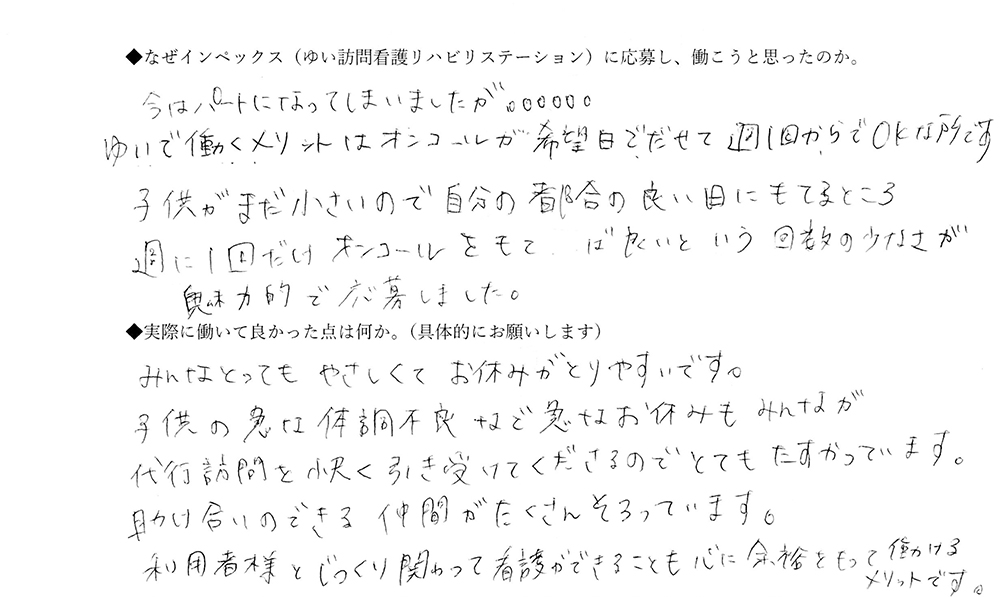 ◆なぜインペックス（ゆい訪問看護リハビリステーション）に応募し、働こうと思ったのか。
今はパートになってしまいましたが。○○○○○○
ゆいで働くメリットはオンコールが希望日でだせて週1回からでOKな所です
子供がまだ小さいので自分の都合の良い日にもてるところ
週に1回だけオンコールをもて ば良いという回数の少なさが
魅力的で応募しました。
◆実際に働いて良かった点は何か。（具体的にお願いします）
みんなとってもやさしくてお休みがとりやすいです。
子供の急な体調不良などで急なお休みもみんなが
代行訪問を快く引き受けてくださるのでとてもたすかっています。
助け合いのできる仲間がたくさんそろっています。
利用者様とじっくり関わって看護ができることも心に余裕をもって働ける
メリットです。